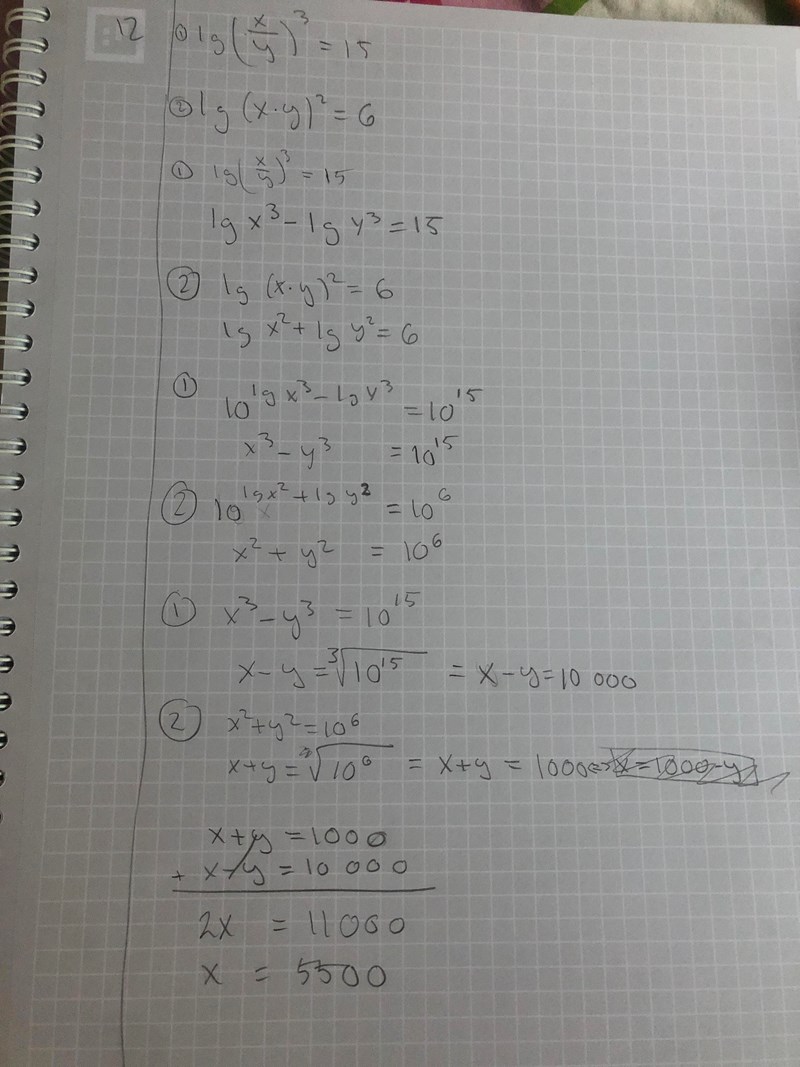 12 ① lg(x/y)³ = 15
② lg (x·y)² = 6
① lg(x/y)³ = 15
lg x³ - lg y³ = 15
② lg (x·y)² = 6
lg x² + lg y² = 6
① 10^(lg x³ - lg y³) = 10¹⁵
x³ - y³ = 10¹⁵
② 10^(lg x² + lg y²) = 10⁶
x² + y² = 10⁶
① x³ - y³ = 10¹⁵
x - y = ³√10¹⁵ = x - y = 10 000
② x² + y² = 10⁶
x + y = ²√10⁶ = x + y = 1000
x + y = 1000
+ x - y = 10 000
2x = 11000
x = 5500